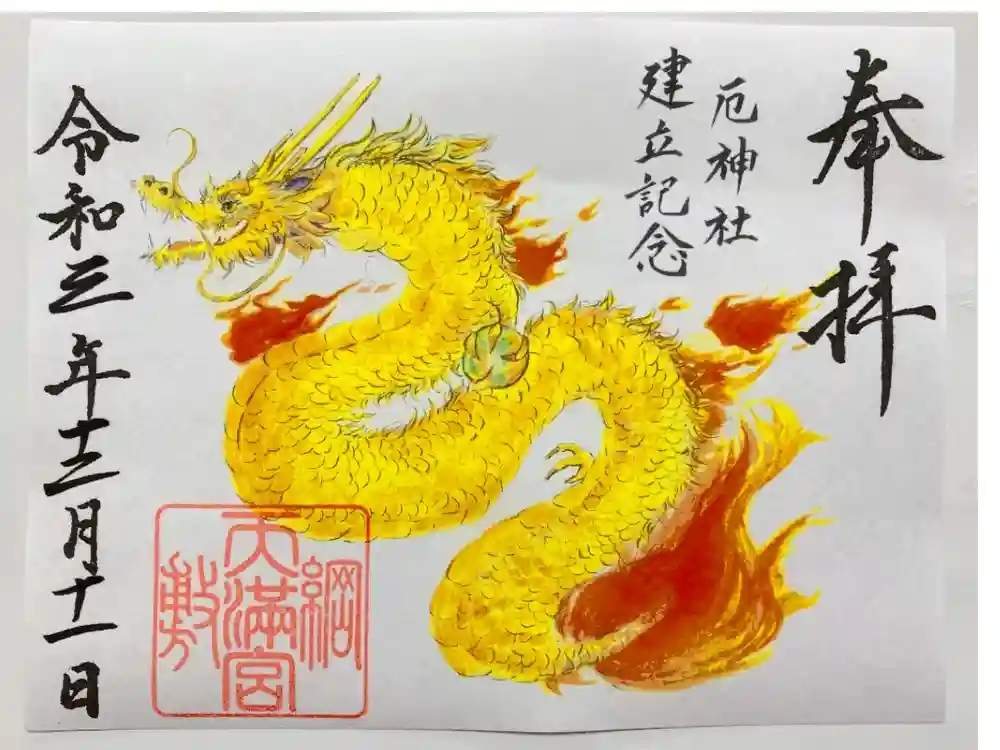 奉拝
厄神社
建立記念
令和三年十二月十一日
綱敷
天滿宮